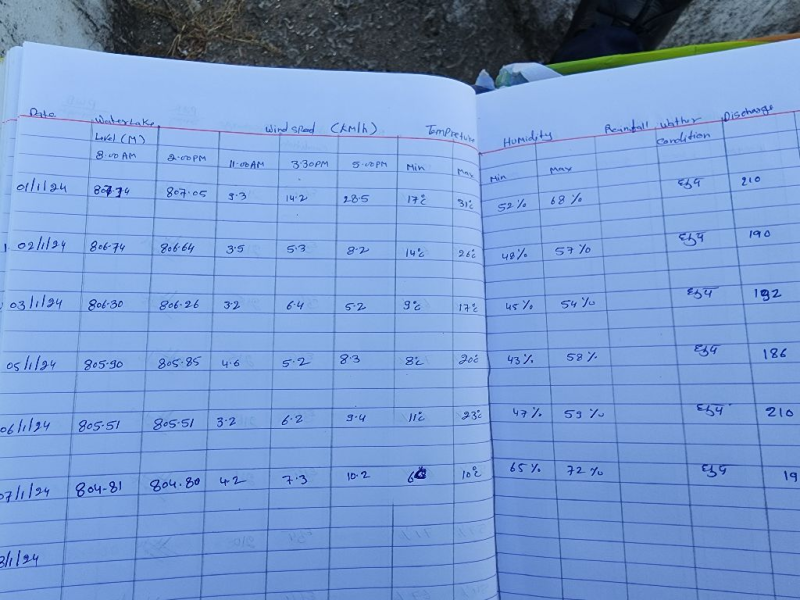 Date Waterlake Wind speed (Km/h) Tempreture Humidity Rainfall Wather Discharge
Level (M) Condition
8.00AM 2.00PM 11.00AM 3.30PM 5.00PM Min Max Min Max
01/1/24 807.05 9.3 14.2 28.5 17°c 31°c 52% 68% 210
02/1/24 806.74 806.64 3.5 5.3 8.2 14°c 26°c 48% 57% 190
03/1/24 806.30 806.26 3.2 6.4 5.2 9°c 17°c 45% 54% 192
05/1/24 805.90 805.85 4.6 5.2 8.3 8°c 20°c 43% 58% 186
06/1/24 805.51 805.51 3.2 6.2 9.4 11°c 23°c 47% 59% 210
07/1/24 804.81 804.80 4.2 7.3 10.2 10°c 65% 72% 19
8/1/24